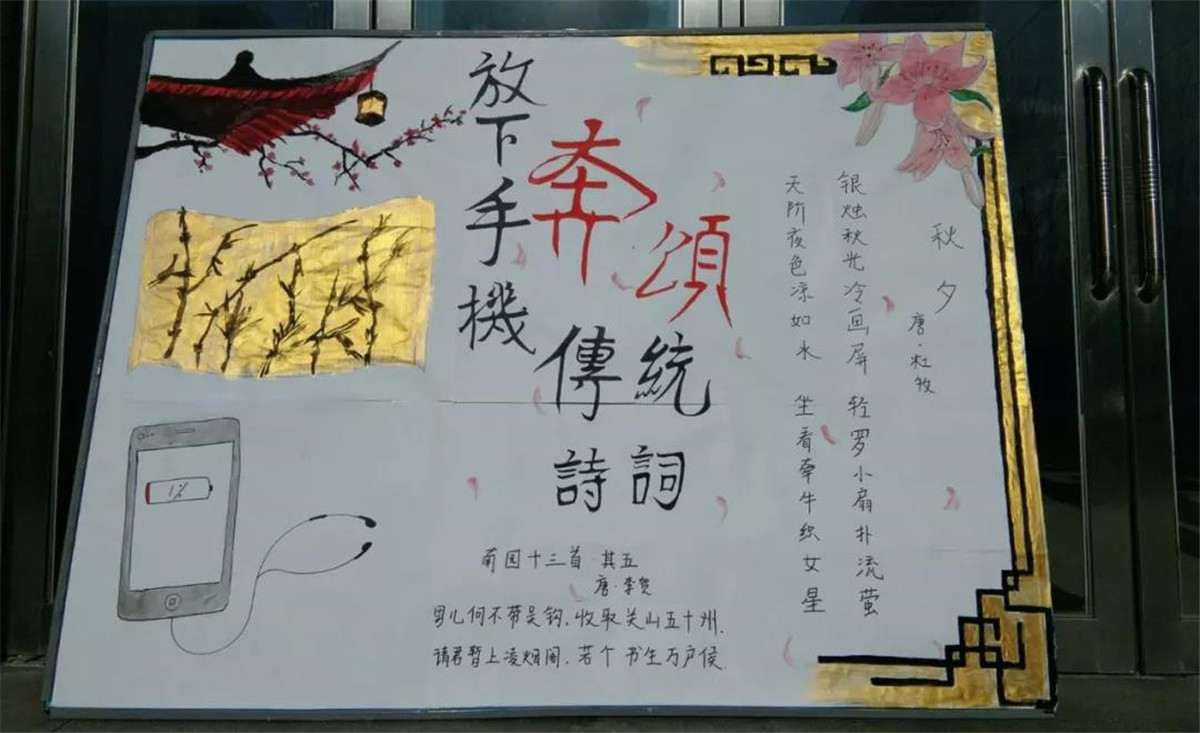 放下手機
奔頌
傳統
詩詞
秋夕
唐·杜牧
银烛秋光冷画屏 轻罗小扇扑流萤
天阶夜色凉如水 坐看牵牛织女星
南园十三首·其五
唐·李贺
男儿何不带吴钩,收取关山五十州.
请君暂上凌烟阁,若个书生万户侯.
1%